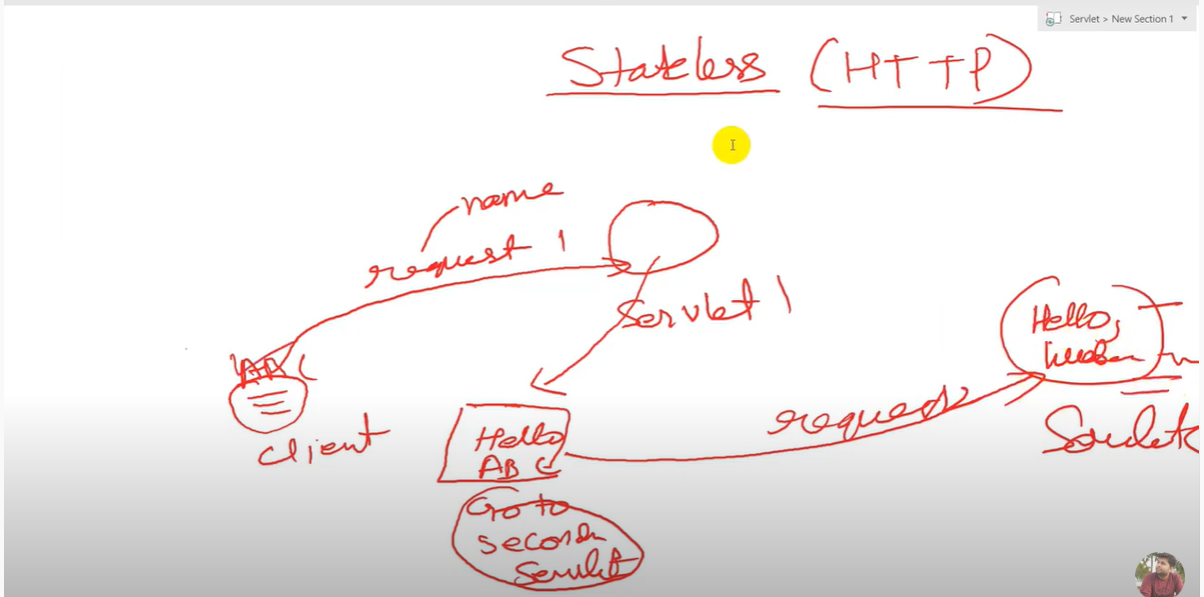 Servlet > New Section 1
Stateless (HTTP)
name
request 1
Servlet 1
ABC
client
Hello
ABC
Go to
second
Servlet
request
Hello,